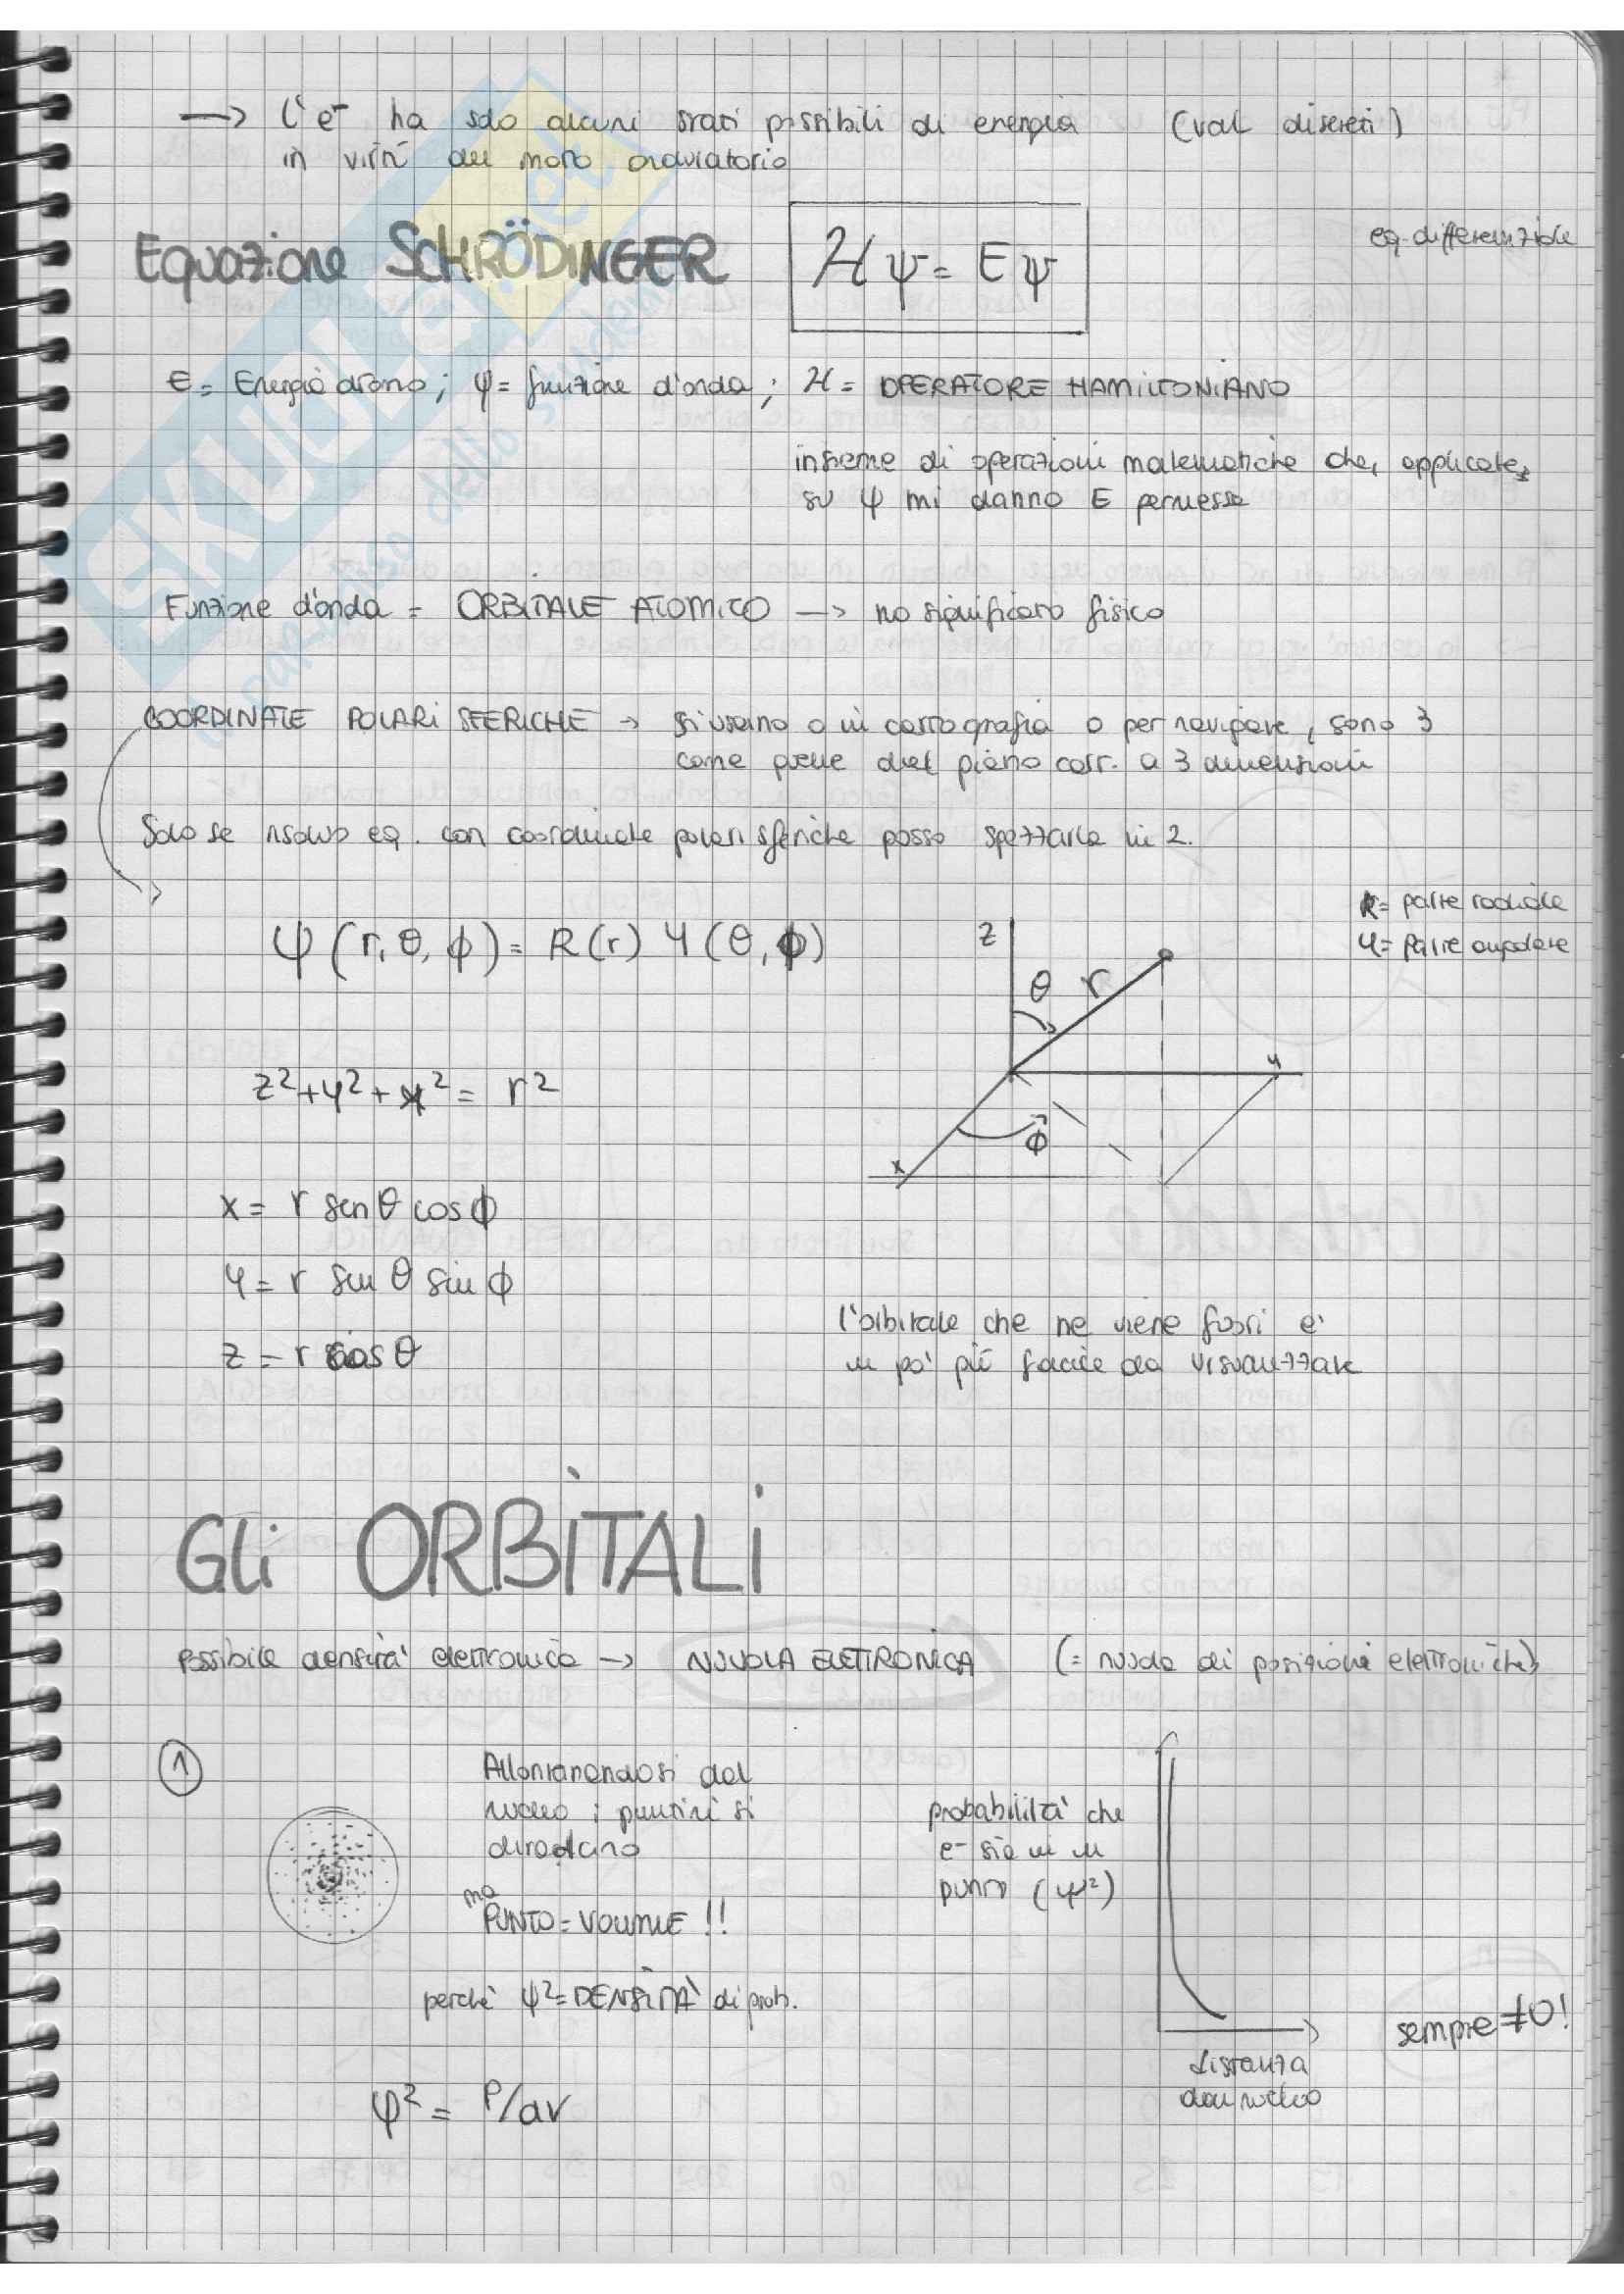 → l'e⁻ ha solo alcuni stati possibili di energia (val discreti)
in virtù del moto ondulatorio
Equazione SCHRÖDINGER
Hψ = Eψ
eq. differenziale
E = Energia atomo; ψ = funzione d'onda; H = OPERATORE HAMILTONIANO
insieme di operazioni matematiche che, applicate,
su ψ mi danno E permesse
Funzione d'onda = ORBITALE ATOMICO → no significato fisico
COORDINATE POLARI SFERICHE → si usano o in cartografia o per navigare, sono 3
come quelle del piano cart. a 3 dimensioni
Solo se risolvo eq. con coordinate polari sferiche posso spezzarla in 2.
R = parte radiale
Y = parte angolare
ψ (r, θ, ϕ) = R(r) Y(θ, ϕ)
z
θ r
y
ϕ
x
z² + y² + x² = r²
x = r sen θ cos ϕ
y = r sin θ sin ϕ
z = r cos θ
l'orbitale che ne viene fuori è
un po' più facile da visualizzare
Gli ORBITALI
possibile densità elettronica → NUVOLA ELETTRONICA (= nuvola di posizioni elettroniche)
1
Allontanandosi dal
nucleo i puntini si
diradano
ma
PUNTO = VOLUME !!
perché ψ² = DENSITÀ di prob.
ψ² = P/dV
probabilità che
e⁻ sia in un
punto (ψ²)
distanza
dal nucleo
sempre ≠0!
SKUOLA.net
il paradiso dello studente